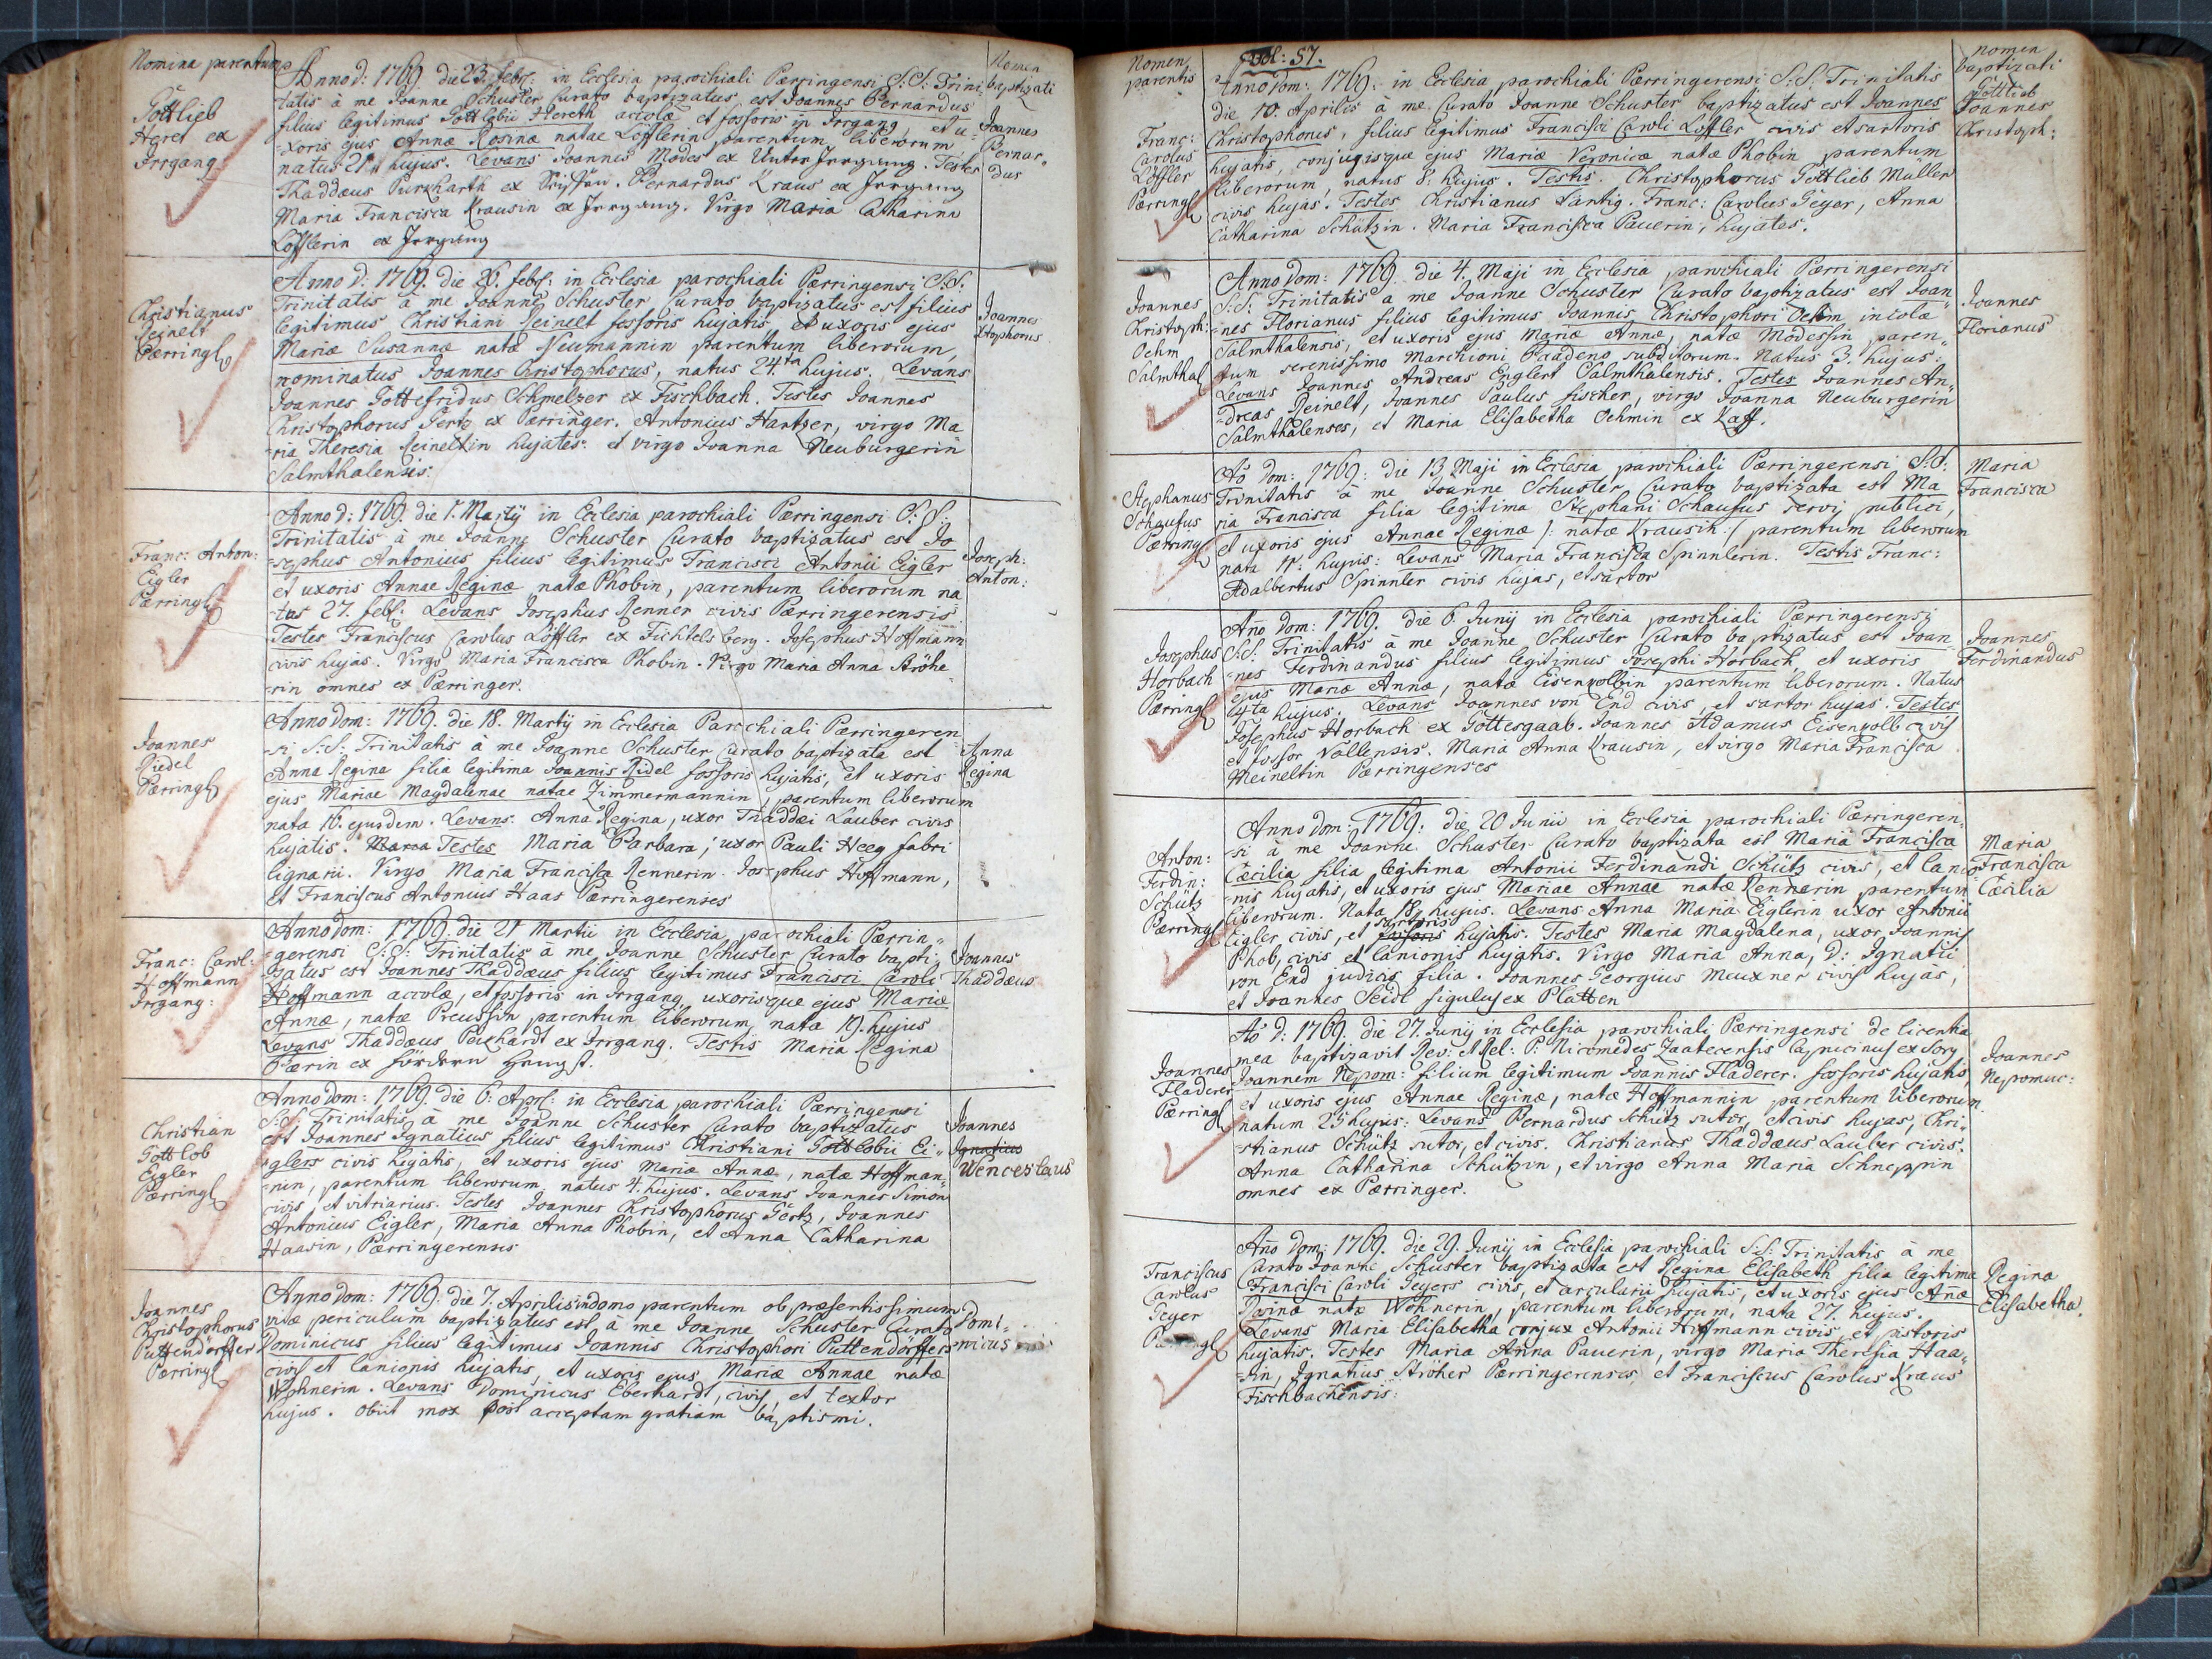 Nomina parentum
Nomen
baptizati
Gottlieb
Heret ex
Irrgang
Anno d: 1769. die 23. febr: in Ecclesia parochiali Pærringensi S:S: Trini
tatis à me Joanne Schuster Curato baptizatus est Joannes Bernardus
filius legitimus Gottlebii Hereth accolæ et fossoris in Irrgang, et u-
-xoris ejus Annæ Rosinæ natae Löfflerin parentum liberorum,
natus 21. hujus. Levans Joannes Modes ex Unter Irrgang. Testes
Thaddæus Purkharth ex. Bernardus Kraus ex Irrgang
Maria Francisca Krausin ex Irrgang. Virgo Maria Catharina
Löfflerin ex Irrgang
Joannes
Bernar-
dus
Christianus
Reinelt
Pærring
Anno d: 1769. die 26. febr: in Ecclesia parochiali Pærringensi S:S:
Trinitatis à me Joanne Schuster Curato baptizatus est filius
legitimus Christiani Reinelt fossoris hujatis, et uxoris ejus
Mariæ Susannæ natæ Neumannin parentum liberorum,
nominatus Joannes Christophorus, natus 24.ta hujus. Levans
Joannes Gottefridus Schmelzer ex Fischbach. Testes Joannes
Christophorus Gertz ex Pærringer. Antonius Hantzer, virgo Ma
-ria Theresia Reineltin hujates. et virgo Joanna Neuburgerin
Salmthalensis.
Joannes
Xtophorus
Franc: Anton:
Eigler
Pærring
Anno d: 1769. die 1. Martij in Ecclesia parochiali Pærringensi S:S:
Trinitatis à me Joanne Schuster Curato baptizatus est Jo
-sephus Antonius filius legitimus Francisci Antonii Eigler
et uxoris Annae Reginæ natæ Phobin, parentum liberorum na
-tus 27. febr: Levans Josephus Renner civis Pærringerensis
Testes Franciscus Carolus Löffler ex Fichtelsberg. Josephus Hoffmann
civis hujas. Virgo Maria Francisca Phobin. Virgo Maria Anna Ströhe-
-rin omnes ex Pærringer.
Joseph:
Anton:
Joannes
Riedel
Pærring
Anno dom: 1769. die 18. Martij in Ecclesia Parochiali Pærringeren
-si S:S: Trinitatis à me Joanne Schuster Curato baptizata est
Anna Regina filia legitima Joannis Ridel fossoris hujatis, et uxoris
ejus Mariae Magdalenae natae Zimmermannin, parentum liberorum
nata 16. ejusdem. Levans. Anna Regina, uxor Thaddæi Lauber civis
hujatis. Testes Maria Barbara, uxor Pauli Heeg fabri
lignarii. Virgo Maria Francisca Rennerin. Josephus Hoffmann,
et Franciscus Antonius Haas Pærringerenses
Anna
Regina
Franc: Carol:
Hoffmann
Irrgang:
Anno dom: 1769. die 21 Martii in Ecclesia parochiali Pærrin-
-gerensi S:S: Trinitatis à me Joanne Schuster Curato bapti-
zatus est Joannes Thaddæus filius legitimus Francisci Caroli
Hoffmann accolæ, et fossoris in Irrgang uxorisque ejus Mariæ
Annæ, natæ Preussin parentum liberorum, nata 19. hujus
Levans Thaddæus Peichardt ex Irrgang. Testis Maria Regina
Bærin ex fördern Hengst.
Joannes
Thaddæus
Christian
Gottlob
Eigler
Pærring
Anno dom: 1769. die 6. Apr: in Ecclesia parochiali Pærringensi
S:S. Trinitatis à me Joanne Schuster Curato baptizatus
est Joannes Ignatius filius legitimus Christiani Gottlobii Ei-
-glers civis hujatis, et uxoris ejus Mariæ Annæ, natæ Hoffman-
-nin, parentum liberorum natus 4. hujus. Levans Joannes Simon
civis et vitriarius. Testes Joannes Christophorus Gertz, Joannes
Antonius Eigler, Maria Anna Phobin, et Anna Catharina
Haasin, Pærringerenses
Joannes
Ignatius
Wenceslaus
Joannes
Christophorus
Puttendörffer
Pærring
Anno dom: 1769. die 7. Aprilis in domo parentum ob præsentissimum
vitæ periculum baptizatus est à me Joanne Schuster Curato
Dominicus filius legitimus Joannis Christophori Puttendörffers
civis et lanionis hujatis, et uxoris ejus Mariæ Annae natæ
Wohnerin. Levans Dominicus Eberhardt, civis, et textor
hujus. obiit mox post acceptam gratiam baptismi.
Domi-
nicus
Nomen
parentis
Fol: 57.
nomen
baptizati
Franc:
Carolus
Löffler
Pærring
Anno dom: 1769. in Ecclesia parochiali Pærringerensi S:S. Trinitatis
die 10. Aprilis à me Curato Joanne Schuster baptizatus est Joannes
Christophorus, filius legitimus Francisci Caroli Löffler civis et sartoris
hujatis, conjugisque ejus Mariæ Veronicæ natæ Phobin parentum
liberorum, natus 8. hujus. Testis. Christophorus Gottlieb Müller
civis hujas. Testes Christianus Säntig. Franc: Carolus Geyer, Anna
Catharina Schützin. Maria Francisca Pauerin, hujates.
Gottlieb
Joannes
Christoph:
Joannes
Christoph:
Oehm
Salmthal
Anno dom: 1769. die 4. Maji in Ecclesia parochiali Pærringerensi
S:S. Trinitatis à me Joanne Schuster Curato baptizatus est Joan
-nes Florianus filius legitimus Joannis Christophori Oehm incolæ
Salmthalensis, et uxoris ejus Mariæ Annæ, natæ Modessin paren-
tum serenissimo Marchioni Baadens subditorum. Natus 3. hujus.
Levans Joannes Andreas Eiglert Salmthalensis. Testes Joannes An-
-dreas Reinelt, Joannes Paulus fischer, virgo Joanna Neuburgerin
Salmthalenses, et Maria Elisabetha Oehmin ex Kaff.
Joannes
Florianus
Stephanus
Schaufus
Pærring
Aō dom: 1769: die 13 Maji in Ecclesia parochiali Pærringerensi S:S:
Trinitatis à me Joanne Schuster Curato baptizata est Ma
ria Francisca filia legitima Stephani Schaufus servi publici,
et uxoris ejus Annae Reginæ /: natæ Krausin :/ parentum liberorum
nata 11. hujus: Levans Maria Francisca Spinnlerin. Testis Franc:
Adalbertus Spinnler civis hujas, et sartor
Maria
Francisca
Josephus
Horbach
Pærring
Año dom: 1769. die 6. Junij in Ecclesia parochiali Pærringerensi
S:S: Trinitatis à me Joanne Schuster Curato baptizatus est Joan
-nes Ferdinandus filius legitimus Josephi Horbach, et uxoris
ejus Mariæ Annæ, natæ Eisenkolbin parentum liberorum. Natus
4ta hujus. Levans Joannes von End civis, et sartor hujas. Testes
Josephus Horbach ex Gottesgaab. Joannes Adamus Eisenkolb civis
et fossor Vallensis. Maria Anna Krausin, et virgo Maria Francisca
Meineltin Pærringenses
Joannes
Ferdinandus
Anton:
Ferdin:
Schütz
Pærring
Anno dom: 1769: die 20 Junii in Ecclesia parochiali Pærringeren-
-si à me Joanne Schuster Curato baptizata est Maria Francisca
Cæcilia filia legitima Antonii Ferdinandi Schütz civis, et lanio
-nis hujatis, et uxoris ejus Mariae Annae natæ Rennerin parentum
liberorum. Nata 18. hujus. Levans Anna Maria Eiglerin uxor Antonii
sartoris
Eigler civis, et fossoris hujatis. Testes Maria Magdalena, uxor Joannis
Phob, civis et lanionis hujatis. Virgo Maria Anna, D: Ignatii
von End judicis filia. Joannes Georgius Muxner civis hujas,
et Joannes Seidl figulus ex Platten
Maria
Francisca
Cæcilia
Joannes
Fladerer
Pærring
Aō d: 1769. die 27. Junij in Ecclesia parochiali Pærringensi de licentia
mea baptizavit Rev: A Rel: P: Nicomedes Zaatecensis Capucinus ex Sorg
Joannem Nepom: filium legitimum Joannis Fladerer. fossoris hujatis
et uxoris ejus Annae Reginæ, natæ Hoffmannin parentum liberorum
natum 25 hujus: Levans Bernardus Schütz sutor, et civis hujas, Chri-
-stianus Schütz sutor, et civis. Christianus Thaddæus Lauber civis.
Anna Catharina Schützin, et virgo Anna Maria Schneppin
omnes ex Pærringer.
Joannes
Nepomuc:
Franciscus
Carolus
Geyer
Año Dom: 1769. die 29. Junij in Ecclesia parochiali S:S: Trinitatis à me
Curato Joanne Schuster baptizata est Regina Elisabeth filia legitima
Francisci Caroli Geyers civis, et arcularii hujatis, et uxoris ejus Añæ
Rosinæ natæ Wohnerin, parentum liberorum, nata 27. hujus.
Levans Maria Elisabetha conjux Antonii Hoffmann civis, et pistoris
hujatis. Testes Maria Anna Pauerin, virgo Maria Theresia Haa-
-sin, Ignatius Ströher Pærringerenses, et Franciscus Carolus Kraus
Fischbachensis.
Regina
Elisabetha.